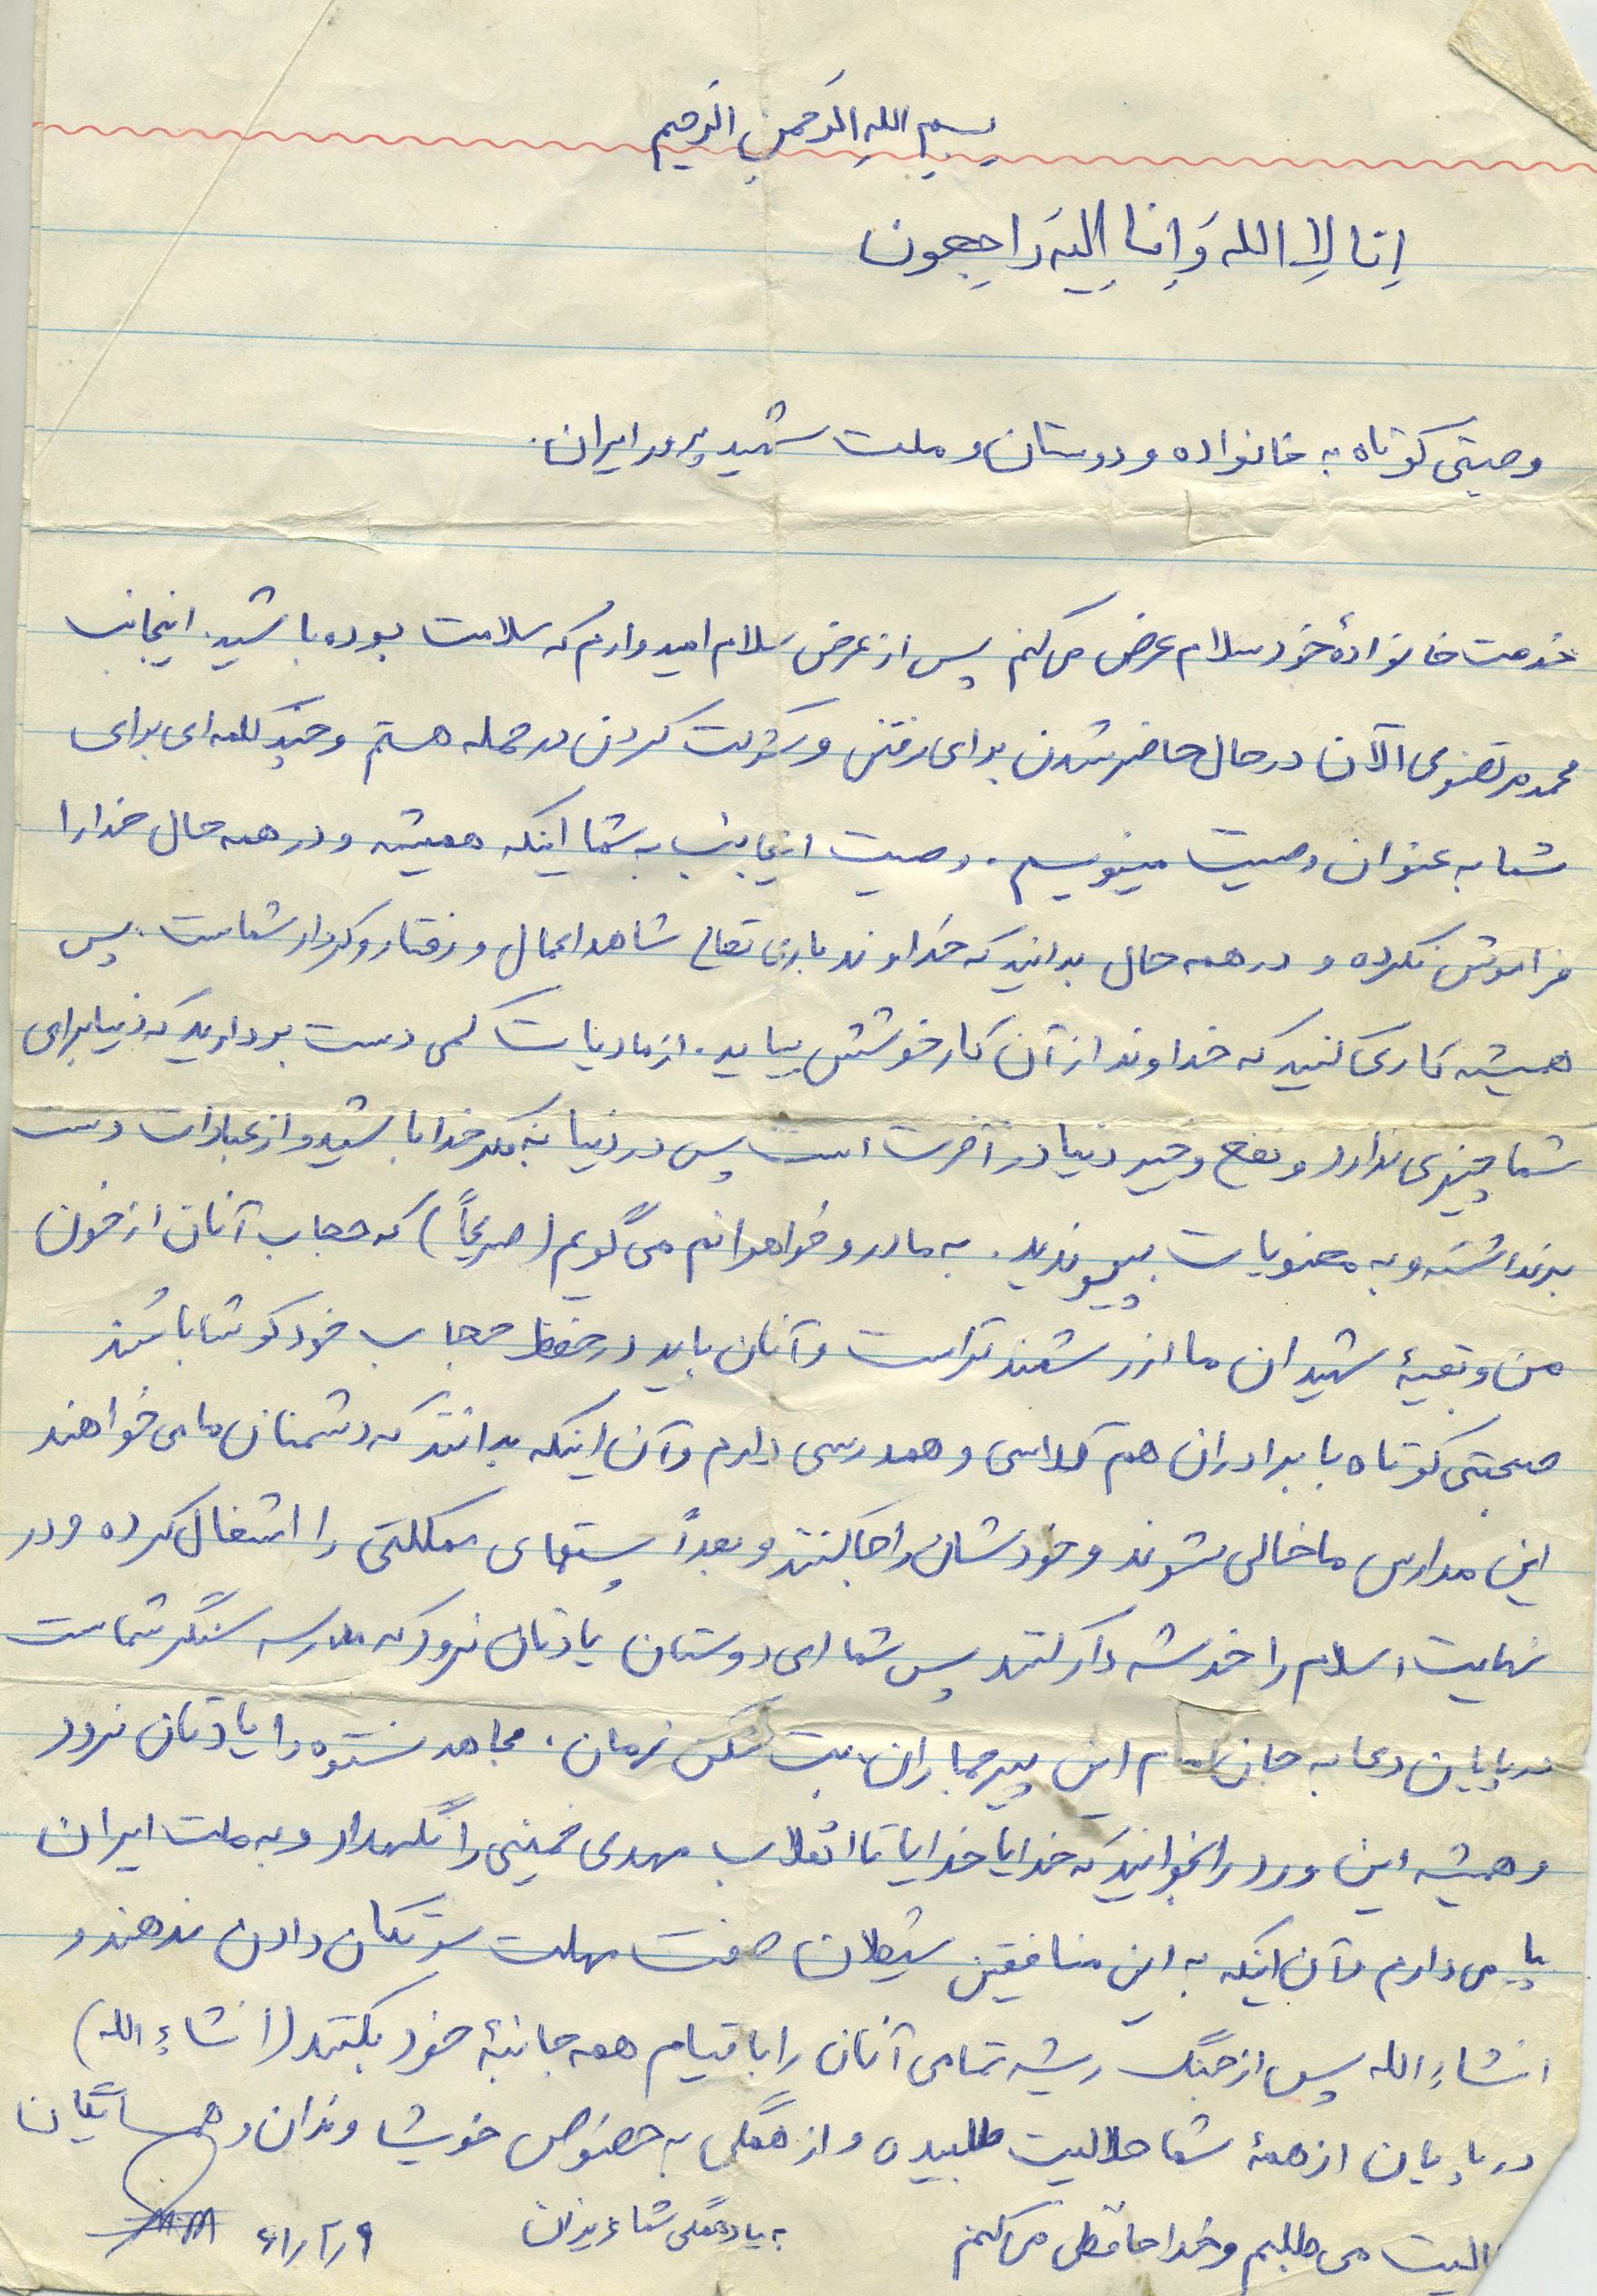 بسم الله الرحمن الرحیم
اِنا لِا الله وَ اِنا اِلیه راجِعون
وصیتی کوتاه به خانواده و دوستان و ملت شهید پرور ایران.
خدمت خانوادهٔ خود سلام عرض می کنم پس از عرض سلام امیدوارم که سلامت بوده باشید. اینجانب
محمد مرتضوی الآن در حال حاضر شدن برای رفتن و شرکت کردن در حمله هستم و چند کلمه ای برای
شما به عنوان وصیت مینویسم. وصیت اینجانب به شما اینکه همیشه و در همه حال خدا را
فراموش نکرده و در همه حال بدانید که خداوند باری تعالی شاهد اعمال و رفتار و کردار شماست. پس
همیشه کاری کنید که خداوند از آن کار خوشش بیاید. از مادیات کمی دست بردارید که دنیا برای
شما چیزی ندارد و نفع و خیر دنیا در آخرت است پس در دنیا به فکر خدا باشید و از عبادات دست
برنداشته و به معنویات بپیوندید. به مادر و خواهرانم می گویم (صریحاً) که حجاب آنان از خون
من و بقیهٔ شهیدان ما ارزشمندتر است و آنان باید در حفظ حجاب خود کوشا باشند
صحبتی کوتاه با برادران هم کلاسی و همدرسی دارم و آن اینکه بدانند که دشمنان ما می خواهند
این مدارس ما خالی شوند و خودشان را جا کنند و بعداً پستهای مملکتی را اشغال کرده و در
نهایت اسلام را خدشه دار کنند پس شما ای دوستان یادتان نرود که مدرسه سنگر شماست
در پایان دعا به جان امام این پیر جماران، بت شکن زمان. مجاهد نستوه را یادتان نرود
و همیشه این ورد را بخوانید که خدایا خدایا تا انقلاب مهدی خمینی را نگهدار و به ملت ایران
پیامی دارم و آن اینکه به این منافقین شیطان صفت مهلت سر تکان دادن ندهند و
انشاءالله پس از جنگ ریشه تمامی آنان را با قیام همه جانبهٔ خود بکنند (انشاءالله)
در پایان از همهٔ شما حلالیت طلبیده و از همگی به خصوص خویشاوندان و همسایگان
حلالیت می طلبم و خداحافظی می کنم به یاد همگی شما عزیزان ۶۱/۲/۹